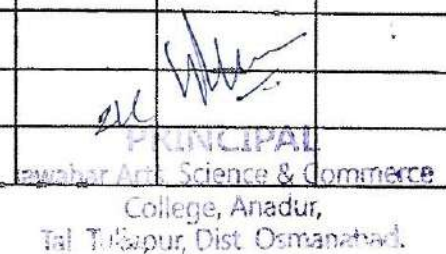 PRINCIPAL
Jawahar Arts Science & Commerce
College, Anadur,
Tal Tuljapur, Dist Osmanabad.